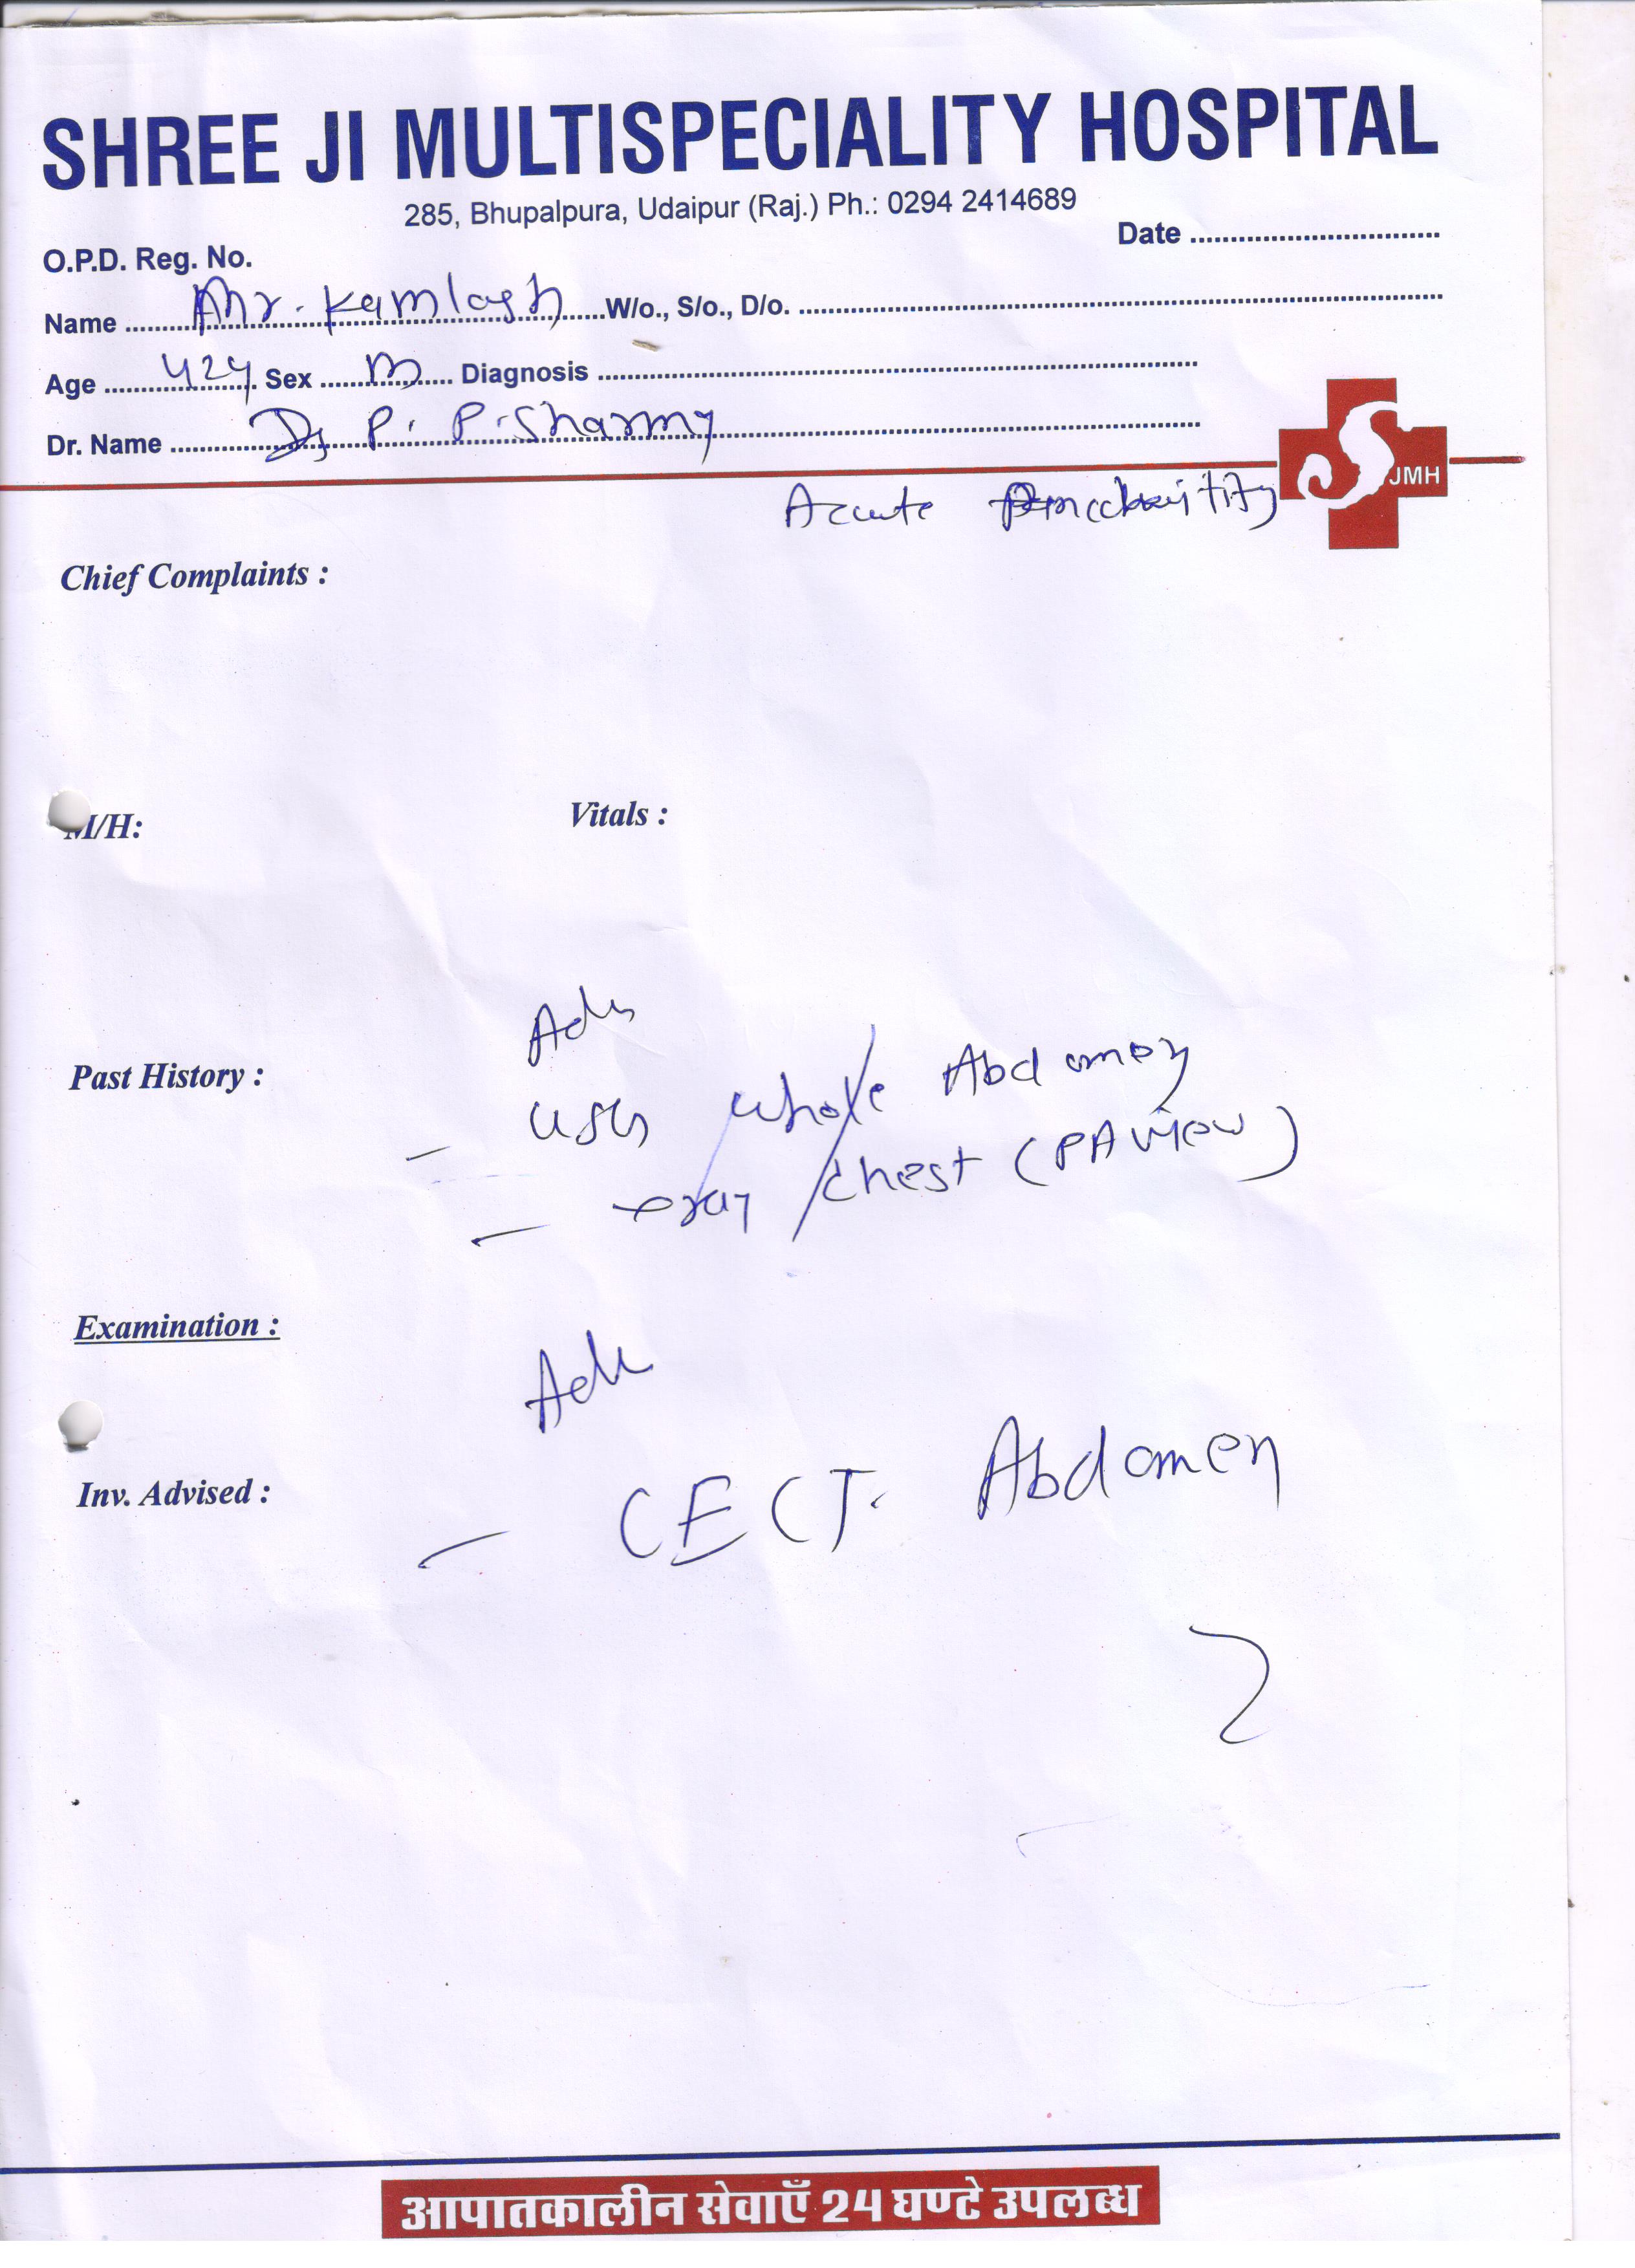 SHREE JI MULTISPECIALITY HOSPITAL
285, Bhupalpura, Udaipur (Raj.) Ph.: 0294 2414689
Date
O.P.D. Reg. No.
Name Mr. Kamlesh W/o., S/o., D/o.
Age 42y Sex M Diagnosis
Dr. Name Dr P. P. Sharma
JMH
Acute
Chief Complaints :
M/H: Vitals :
Adv
Past History :
- USG whole Abdomen
- xray chest (PA view)
Examination :
Adv
Inv. Advised :
- CECT. Abdomen
आपातकालीन सेवाएँ 24 घण्टे उपलब्ध